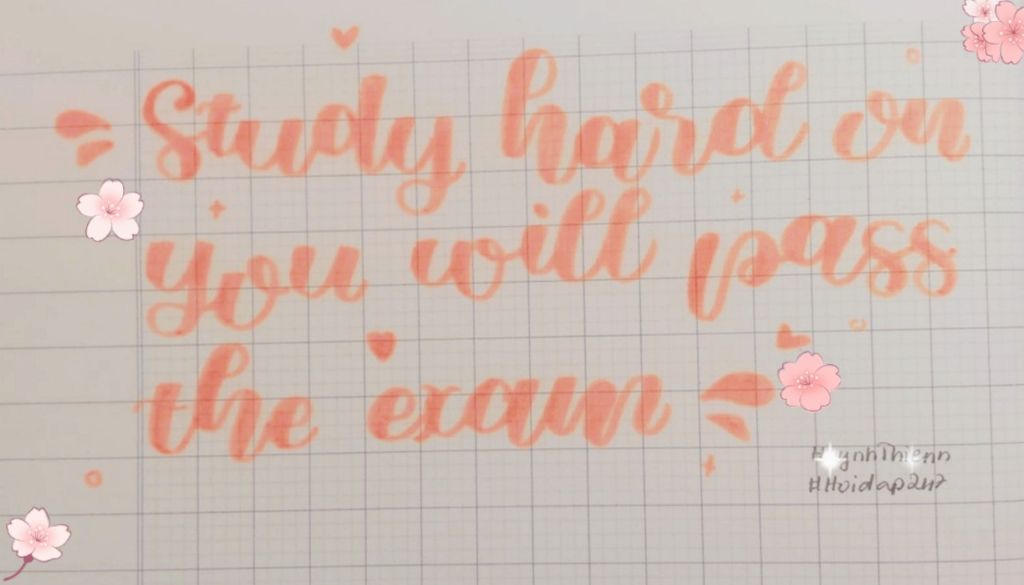 Study hard on
you will pass
the exam
HuynhThienn
#Hoidap247